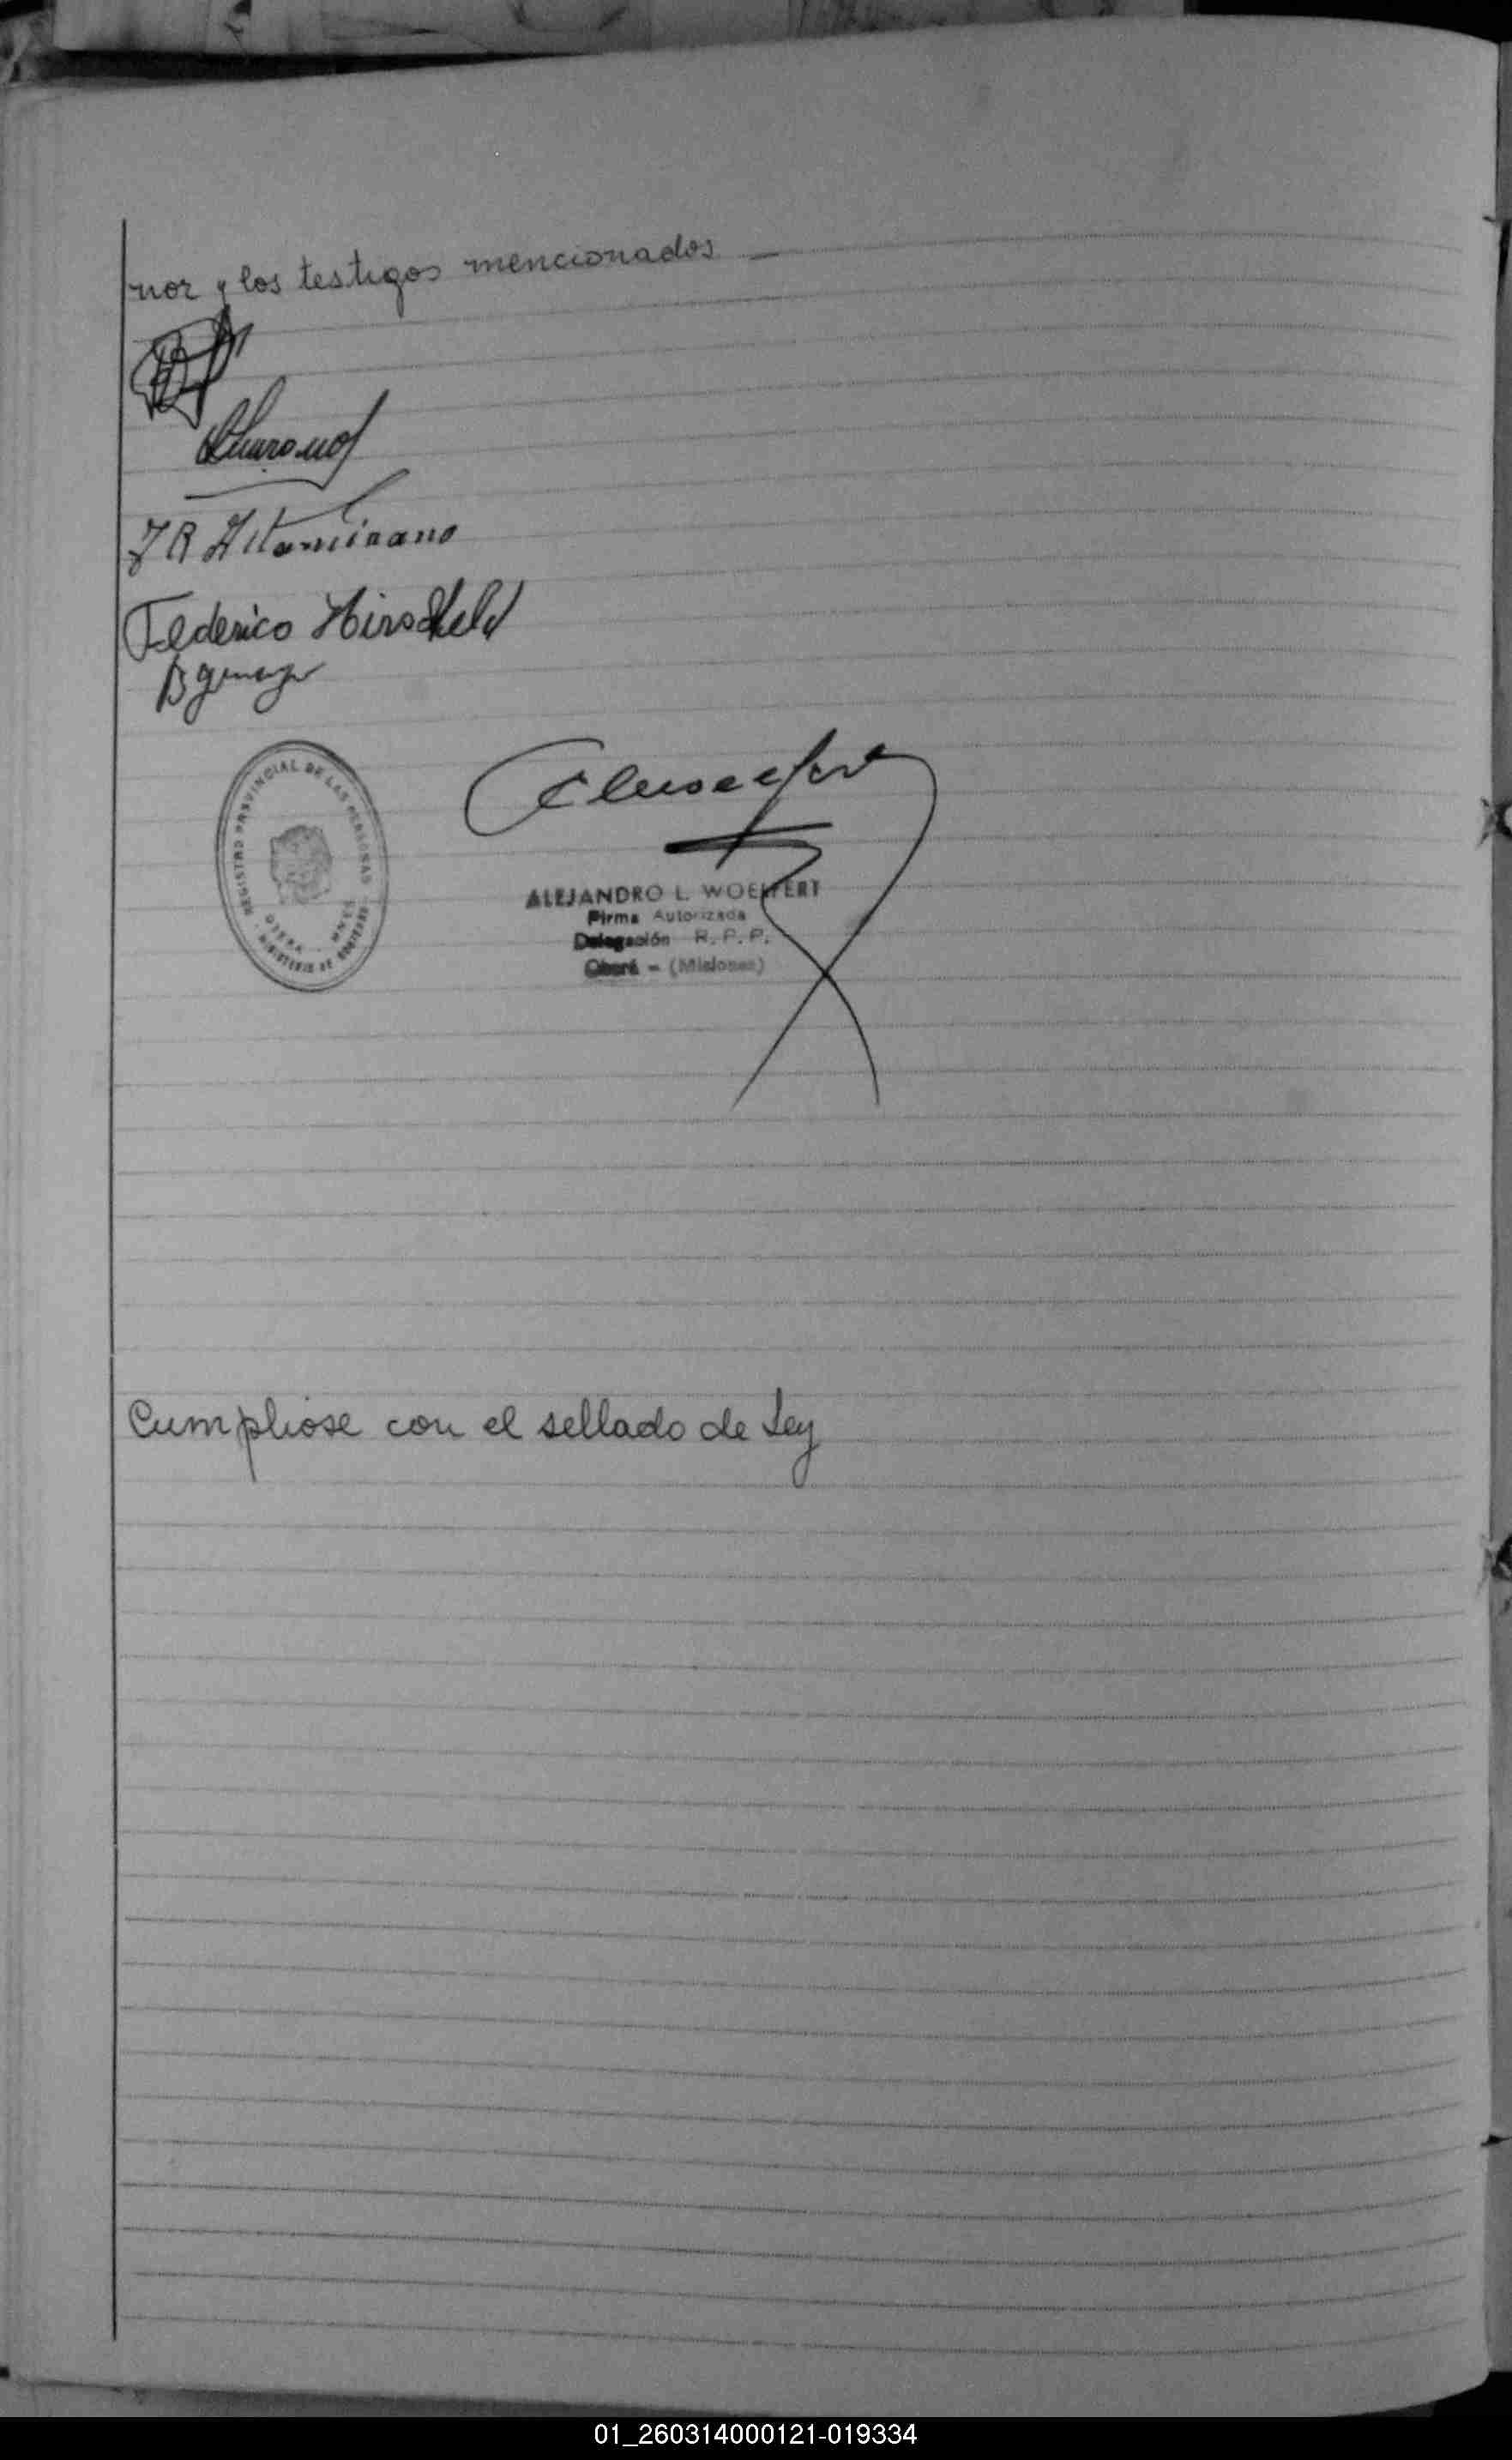 nor y los testigos mencionados —
Federico Hirschfeld
REGISTRO PROVINCIAL DE LAS PERSONAS
MINISTERIO DE GOBIERNO
ALEJANDRO L. WOELFERT
Firma Autorizada
Delegación R. P. P.
Oberá - (Misiones)
Cumpliose con el sellado de Ley
01_260314000121-019334